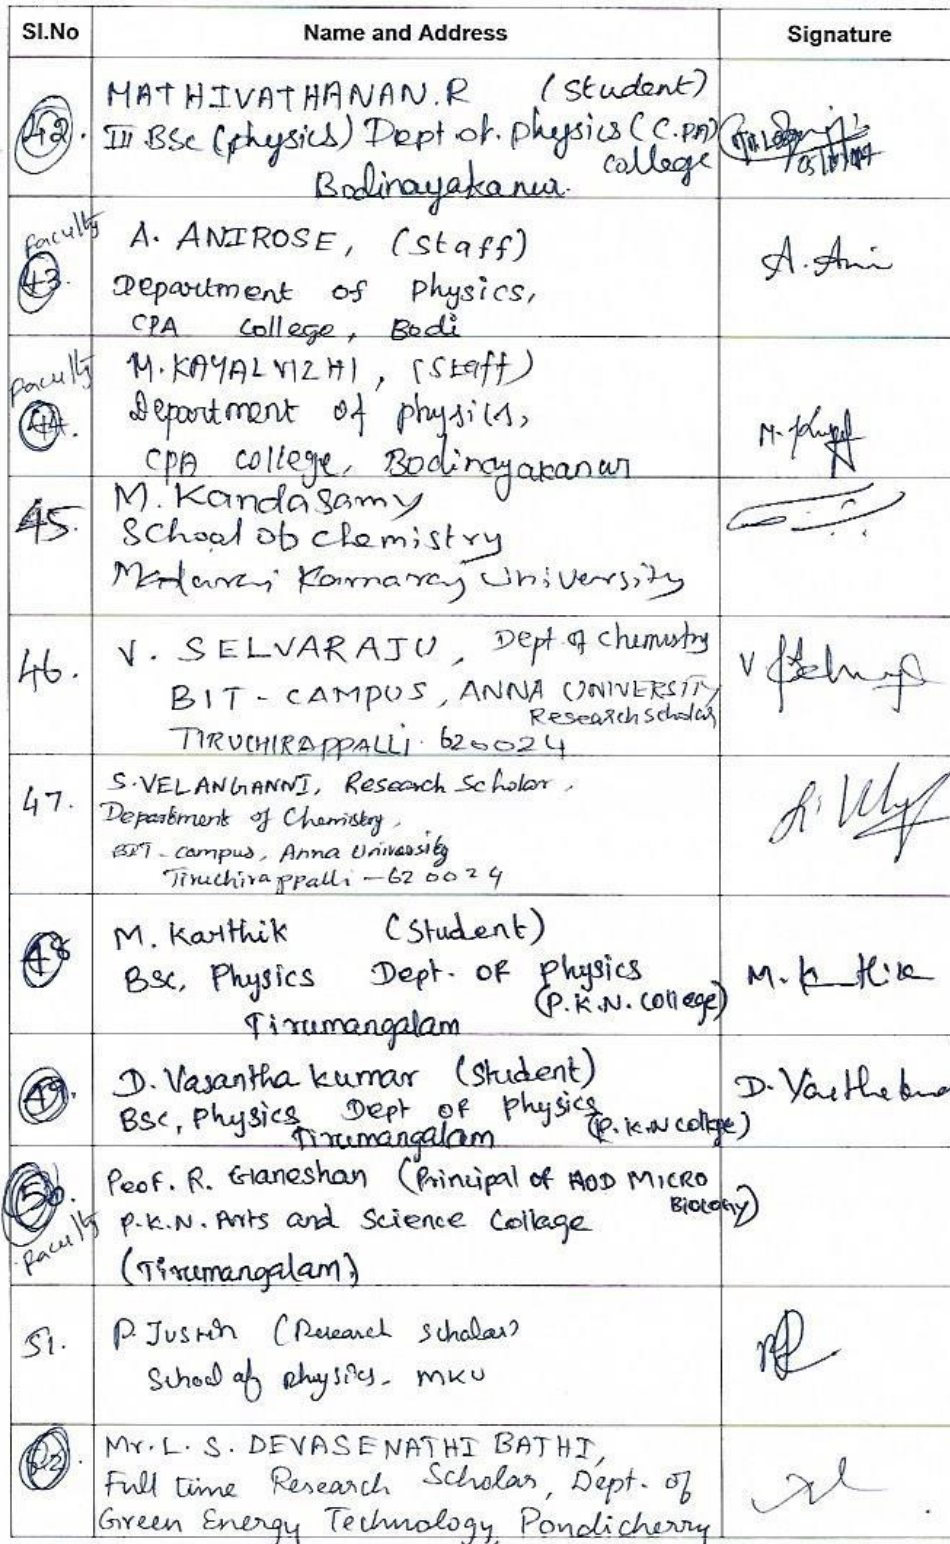 Sl.No Name and Address Signature
42. MATHIVATHANAN.R (Student)
III BSc (physics) Dept of. physics (C.PA)
college
Bodinayakanur.
faculty
43. A. ANIROSE, (Staff) A. Ani
Department of Physics,
CPA college, Bodi
faculty
44. M. KAYALVIZHI, (Staff)
Department of physics,
CPA college, Bodinayakanur
45. M. Kandasamy
School of chemistry
Kamaraj University
46. V. SELVARAJU, Dept of Chemistry
BIT - CAMPUS, ANNA UNIVERSITY
Research Scholar
TIRUCHIRAPPALLI. 620024
47. S. VELANGANNI, Research Scholar,
Department of Chemistry,
BIT - campus, Anna University
Tiruchirappalli - 620024
48 M. Karthik (Student)
BSc, Physics Dept. OF physics
(P.K.N. college)
Tirumangalam
49. D. Vasantha kumar (Student)
BSc, Physics Dept OF physics
(P.K.N college)
Tirumangalam
50. Peof. R. Ganeshan (Principal of HOD MICRO
Biology)
faculty P.K.N. Arts and Science Collage
(Tirumangalam)
51. P. Justin (Research scholar)
School of physics. MKU
52. Mr. L. S. DEVASENATHI BATHI,
Full time Research Scholar, Dept. of
Green Energy Technology, Pondicherry